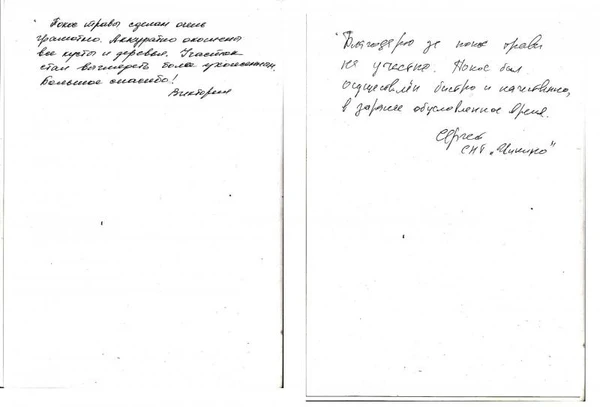 Покос травы сделан очень
грамотно. Аккуратно окошены
все кусты и деревья. Участок
стал выглядеть более ухоженным.
Большое спасибо!
Виктория
Благодарю за покос травы
на участке. Покос был
осуществлён быстро и качественно,
в заранее обусловленное время.
Сергей
СНТ